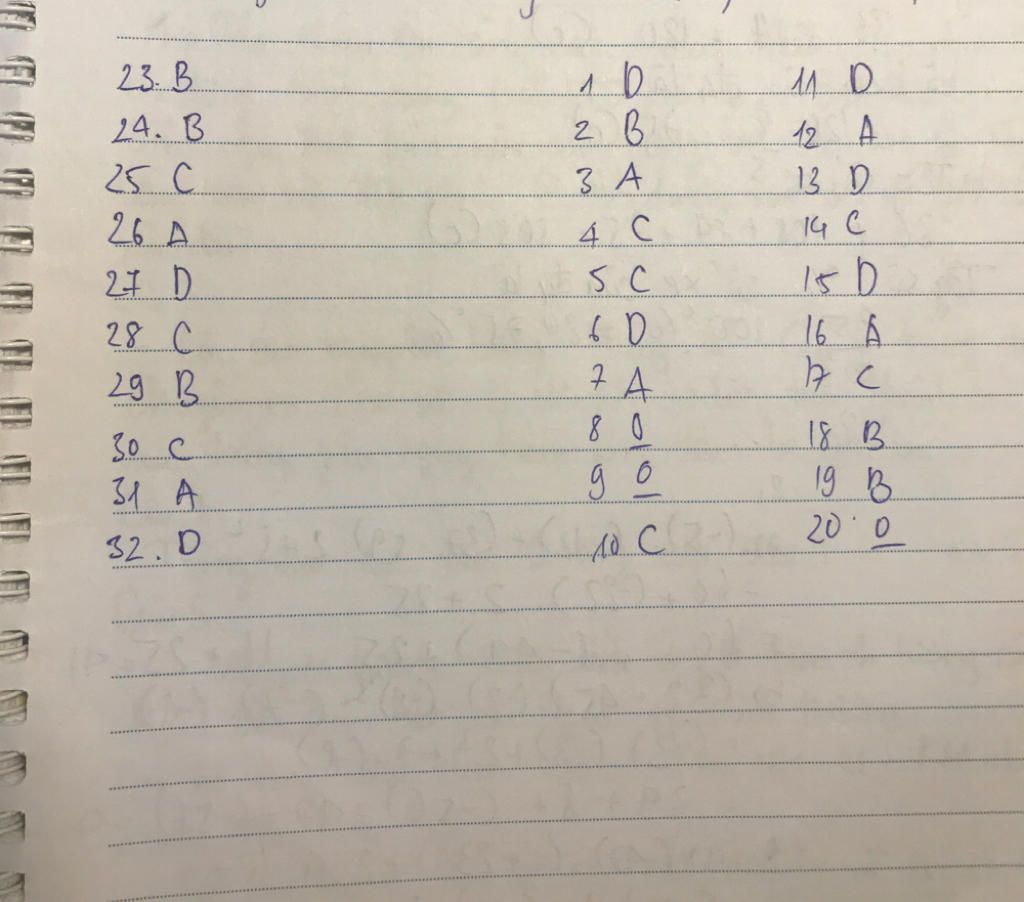 23. B 1 D 11 D
24. B 2 B 12 A
25 C 3 A 13 D
26 A 4 C 14 C
27 D 5 C 15 D
28 C 6 D 16 A
29 B 7 A 17 C
30 C 8 0 18 B
31 A 9 0 19 B
32. D 10 C 20. 0